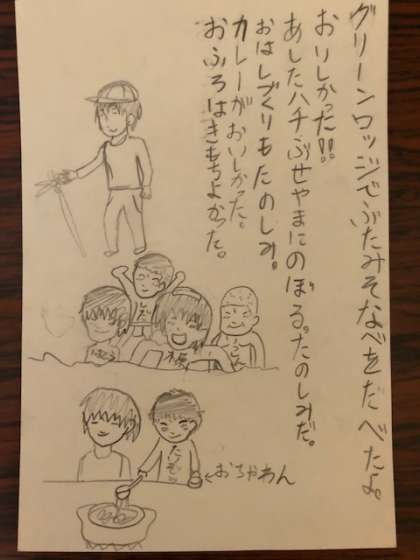 グリーンロッジでぶたみそなべをだべたよ。
おりしかった!!
あしたハチぶせやまにのぼる。たのしみだ。
おはしづくりもたのしみ。
カレーがおいしかった。
おふろはきもちよかった。
←おちゃわん